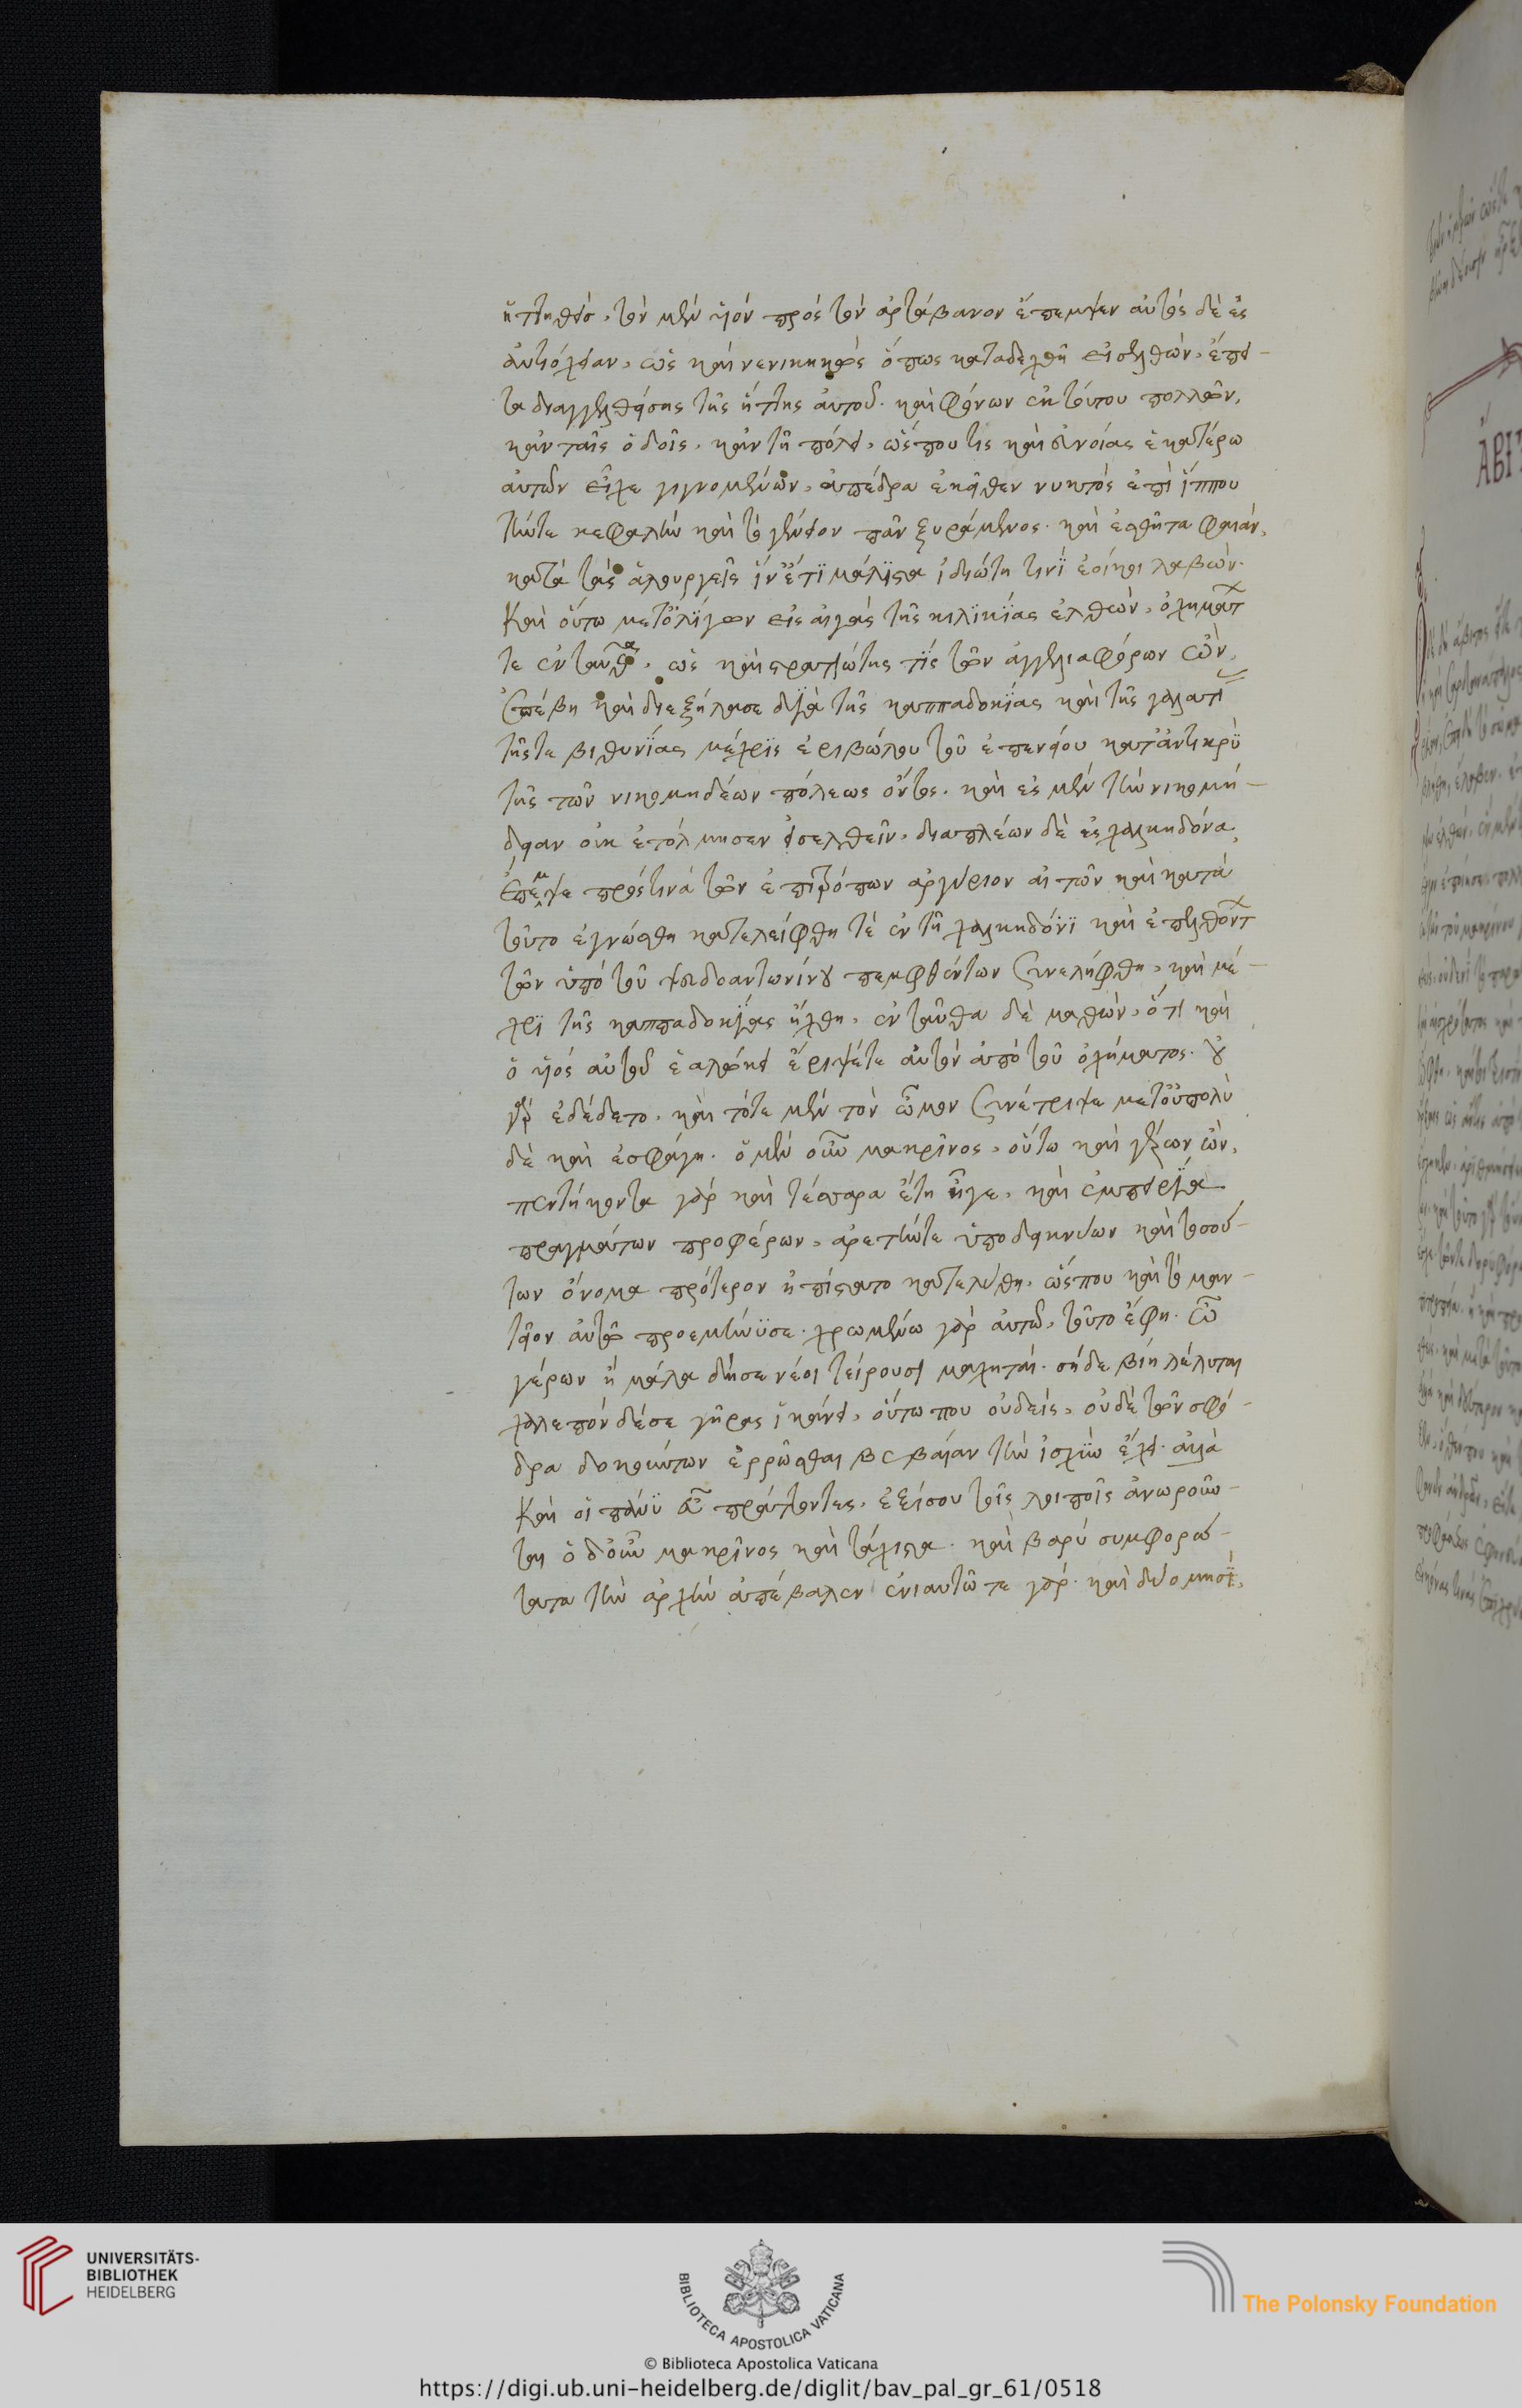 ἡττηθεὶσ, τὸν μὲν ὑὸν πρὸς τὸν ἀρτάβανον ἔπεμψεν αὐτὸς δὲ ἐς
ἀντιόχειαν, ὡς καὶ νενικηκὼς ὅπως καταδεχθῇ εἰσελθὼν, ἔπει-
τα διαγγελθείσης τῆς ἥττης αὐτοῦ. καὶ φόνων ἐκ τούτου πολλῶν,
κἀν ταῖς ὁδοῖς, κἀν τῇ πόλει, ὥς που τις καὶ εὐνοίας ἑκατέρω
αὐτῶν εἶχε γιγνομένων, ἀπέδρα ἐκεῖθεν νυκτὸς ἐπὶ ἵππου
τήν τε κεφαλὴν καὶ τὸ γένειον πᾶν ξυράμενος. καὶ ἐσθῆτα φαιὰν,
κατὰ τὰς ἁλουργεῖς ἵν' ἔτϊ μάλϊστα ἰδιώτη τινϊ ἐοίκοι λαβών.
Καὶ οὕτω μετ' ὀλίγων εἰς αἰγὰς τῆς κιλϊκϊας ἐλθὼν, ὀχηματ
τε ἐνταῦθα, ὡς καὶ στρατιώτης τίς τῶν ἀγγελιαφόρων ὢν,
ἐπέβη καὶ διεξήλασε διὰ τῆς καππαδοκϊας καὶ τῆς γαλατϊ
τῆς τε βιθυνϊας μέχρϊς ἐριβώλου τοῦ ἐπενείου κατ' ἀντικρϋ
τῆς τῶν νικομηδέων πόλεως ὄντος. καὶ ἐς μὲν τὴν νικομή-
δειαν οὐκ ἐτόλμησεν εἰσελθεῖν, διαπλέων δὲ ἐς χαλκηδόνα,
ἔπεμψε πρός τινὰ τῶν ἐπιτρόπων ἀργύριον αἰτῶν καὶ κατὰ
τοῦτο ἐγνώσθη κατελείφθη τὲ ἐν τῇ χαλκηδόνϊ καὶ ἐπελθοντ
τῶν ὑπὸ τοῦ ψευδοαντωνίνου πεμφθέντων συνελήφθη, καὶ μέ-
χρϊ τῆς καππαδοκϊας ἤχθη, ἐνταῦθα δὲ μαθὼν, ὅτι καὶ
ὁ ὑὸς αὐτοῦ ἑαλώκει ἔριψέτε αὑτὸν ἀπὸ τοῦ ὀχήματος. οὐ
γὰρ ἐδέδετο. καὶ τότε μὲν τὸν ὦμον συνέτριψε μετ' οὐπολὺ
δὲ καὶ ἐσφάγη. ὁ μὲν οὖν μακρῖνος, οὕτω καὶ γέρων ὢν,
πεντήκοντα γὰρ καὶ τέσσαρα ἔτη ἦγε, καὶ ἐμπειρϊα
πραγμάτων προφέρων, ἀρετήν τε ὑποδεικνύων καὶ τοσού-
των ὄνομα πρότερον ἠπίστατο κατελύθη, ὥς που καὶ τὸ μαν-
τεῖον αὐτῷ προεμήνϋσε. χρωμένω γὰρ αὐτῶ, τοῦτο ἔφη. ὦ
γέρων ἦ μάλα δή σε νέοι τείρουσι μαχηταί. σὴ δε βίη λέλυται
χαλεπὸν δέσε γῆρας ἱκάνει, οὕτω που οὐδεὶς, οὐδὲ τῶν σφό-
δρα δοκούντων ἐρρῶσθαι βεβαίαν τὴν ἰσχὺν ἔχει. ἀλλὰ
Καὶ οἱ πάνϋ εὖ πράττοντες, ἐξίσου τοῖς λοιποῖς ἀνωροῦν-
ται ὁ δ' οὖν μακρῖνος καὶ τάχιστα. καὶ βαρύ συμφορώ-
τατα τὴν ἀρχὴν ἀπέβαλεν ἐνιαυτῶ τε γὰρ. καὶ δύο μησὶ,